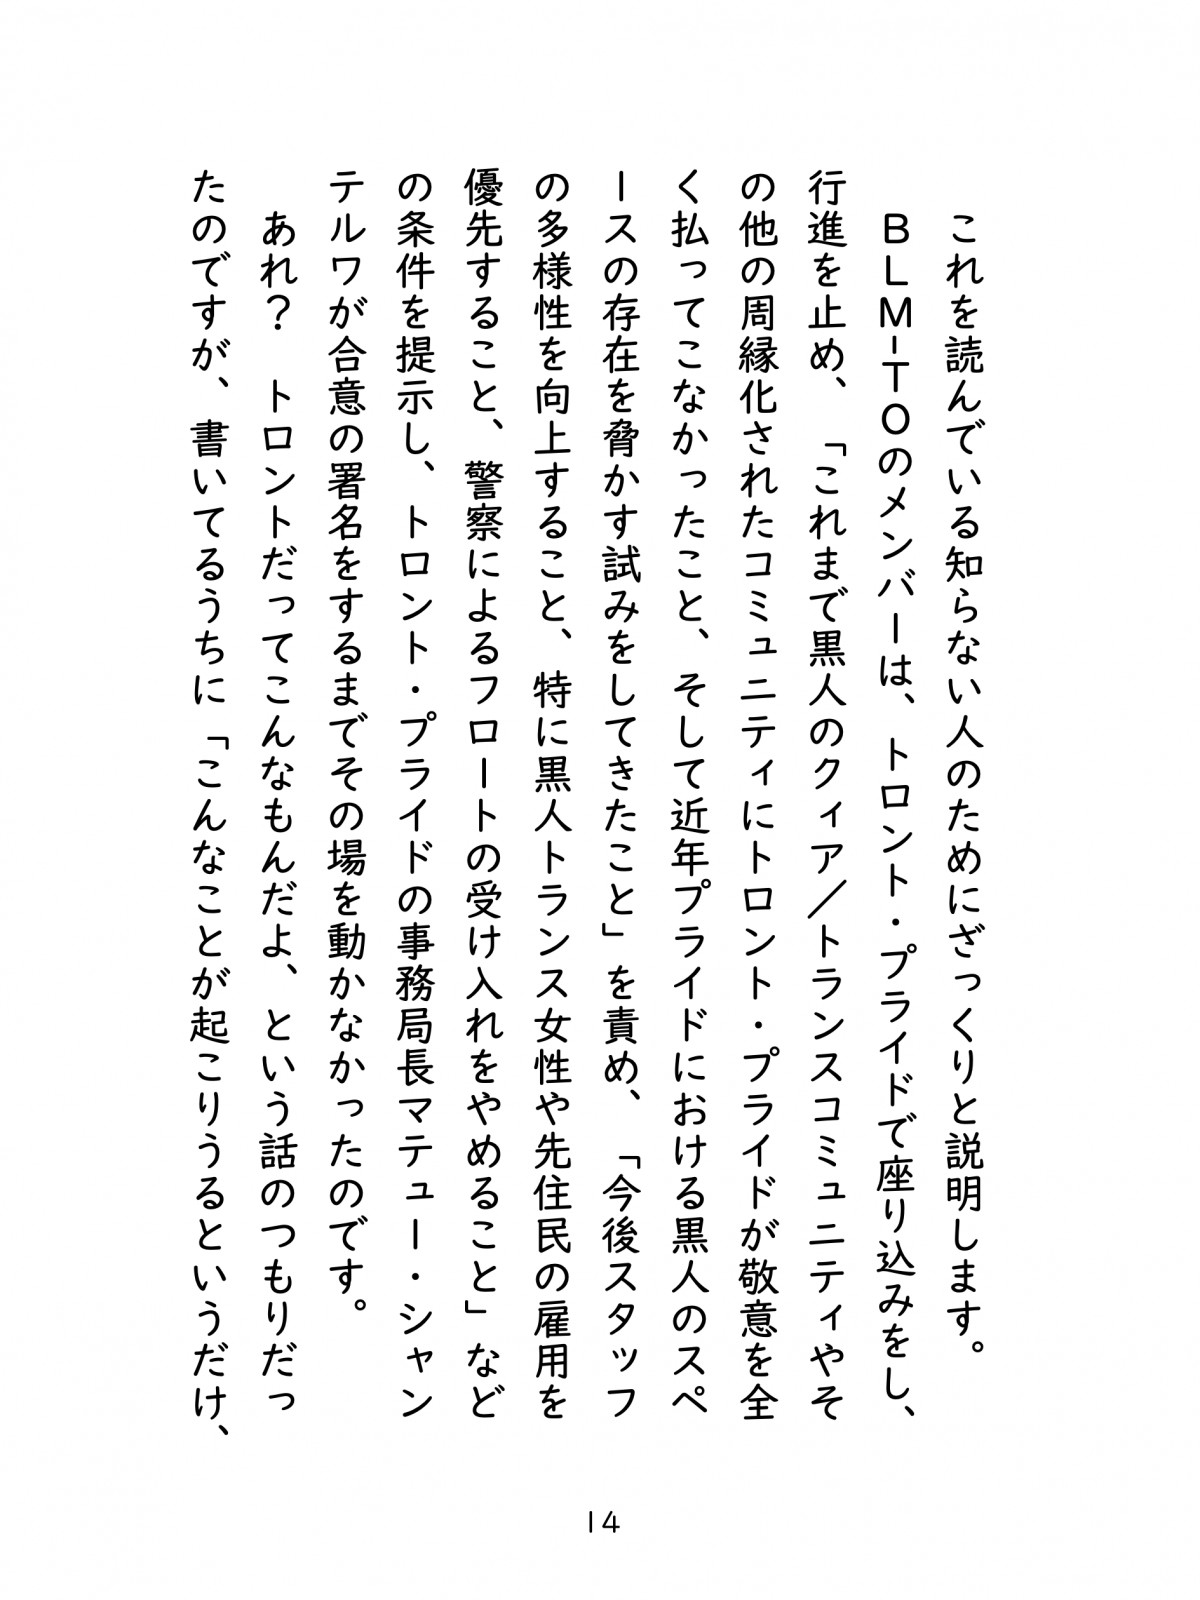 これを読んでいる知らない人のためにざっくりと説明します。
ＢＬＭ－ＴＯのメンバーは、トロント・プライドで座り込みをし、
行進を止め、「これまで黒人のクィア／トランスコミュニティやそ
の他の周縁化されたコミュニティにトロント・プライドが敬意を全
く払ってこなかったこと、そして近年プライドにおける黒人のスペ
ースの存在を脅かす試みをしてきたこと」を責め、「今後スタッフ
の多様性を向上すること、特に黒人トランス女性や先住民の雇用を
優先すること、警察によるフロートの受け入れをやめること」など
の条件を提示し、トロント・プライドの事務局長マテュー・シャン
テルワが合意の署名をするまでその場を動かなかったのです。
あれ？　トロントだってこんなもんだよ、という話のつもりだっ
たのですが、書いてるうちに「こんなことが起こりうるというだけ、
14